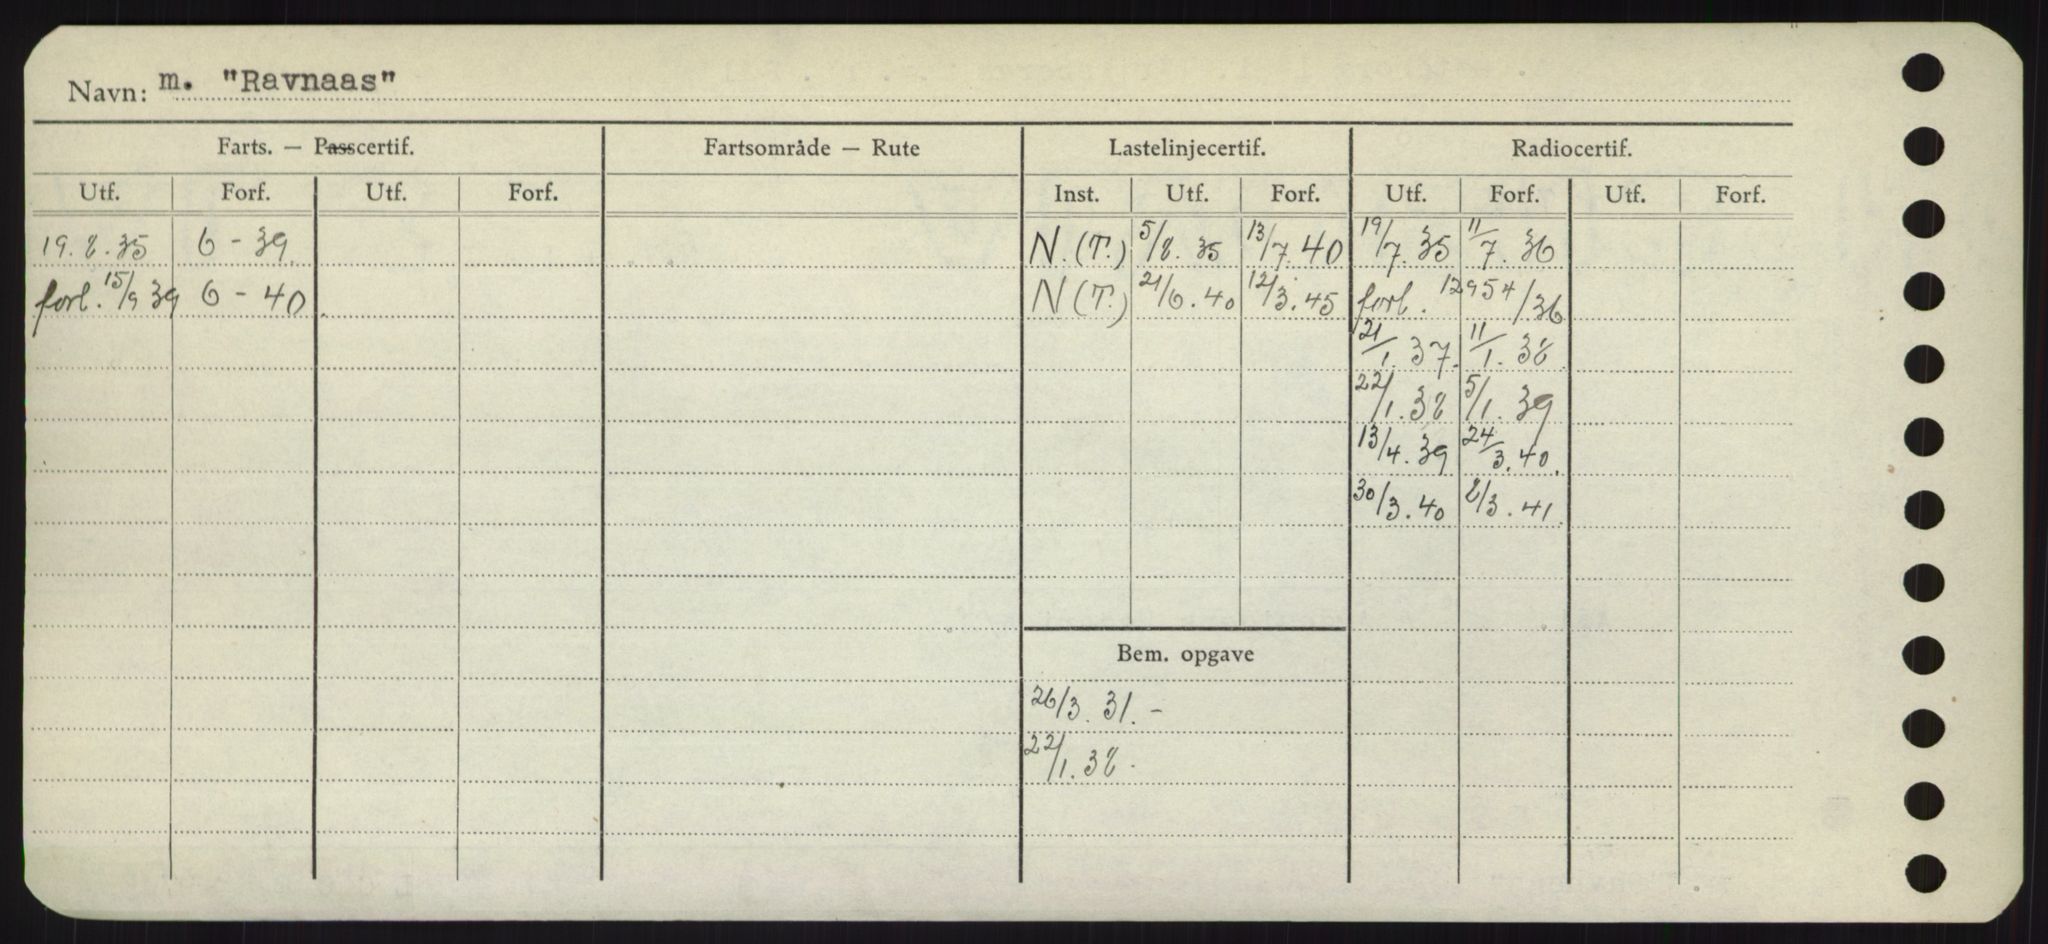 Navn: m. "Ravnaas"
Farts. — Passcertif. Fartsområde — Rute Lastelinjecertif. Radiocertif.
Utf. Forf. Utf. Forf. Inst. Utf. Forf. Utf. Forf. Utf. Forf.
19.8.35 6-39 N.(T.) 5/8.35 13/7.40 19/7.35 11/7.36
forl. 15/9 39 6-40 N(T.) 21/6.40 12/3.45 forl. 12954/36
21/1.37. 11/1.38
22/1.38 5/1.39
13/4.39 24/3.40.
30/3.40 8/3.41
Bem. opgave
26/3.31.-
22/1.38.